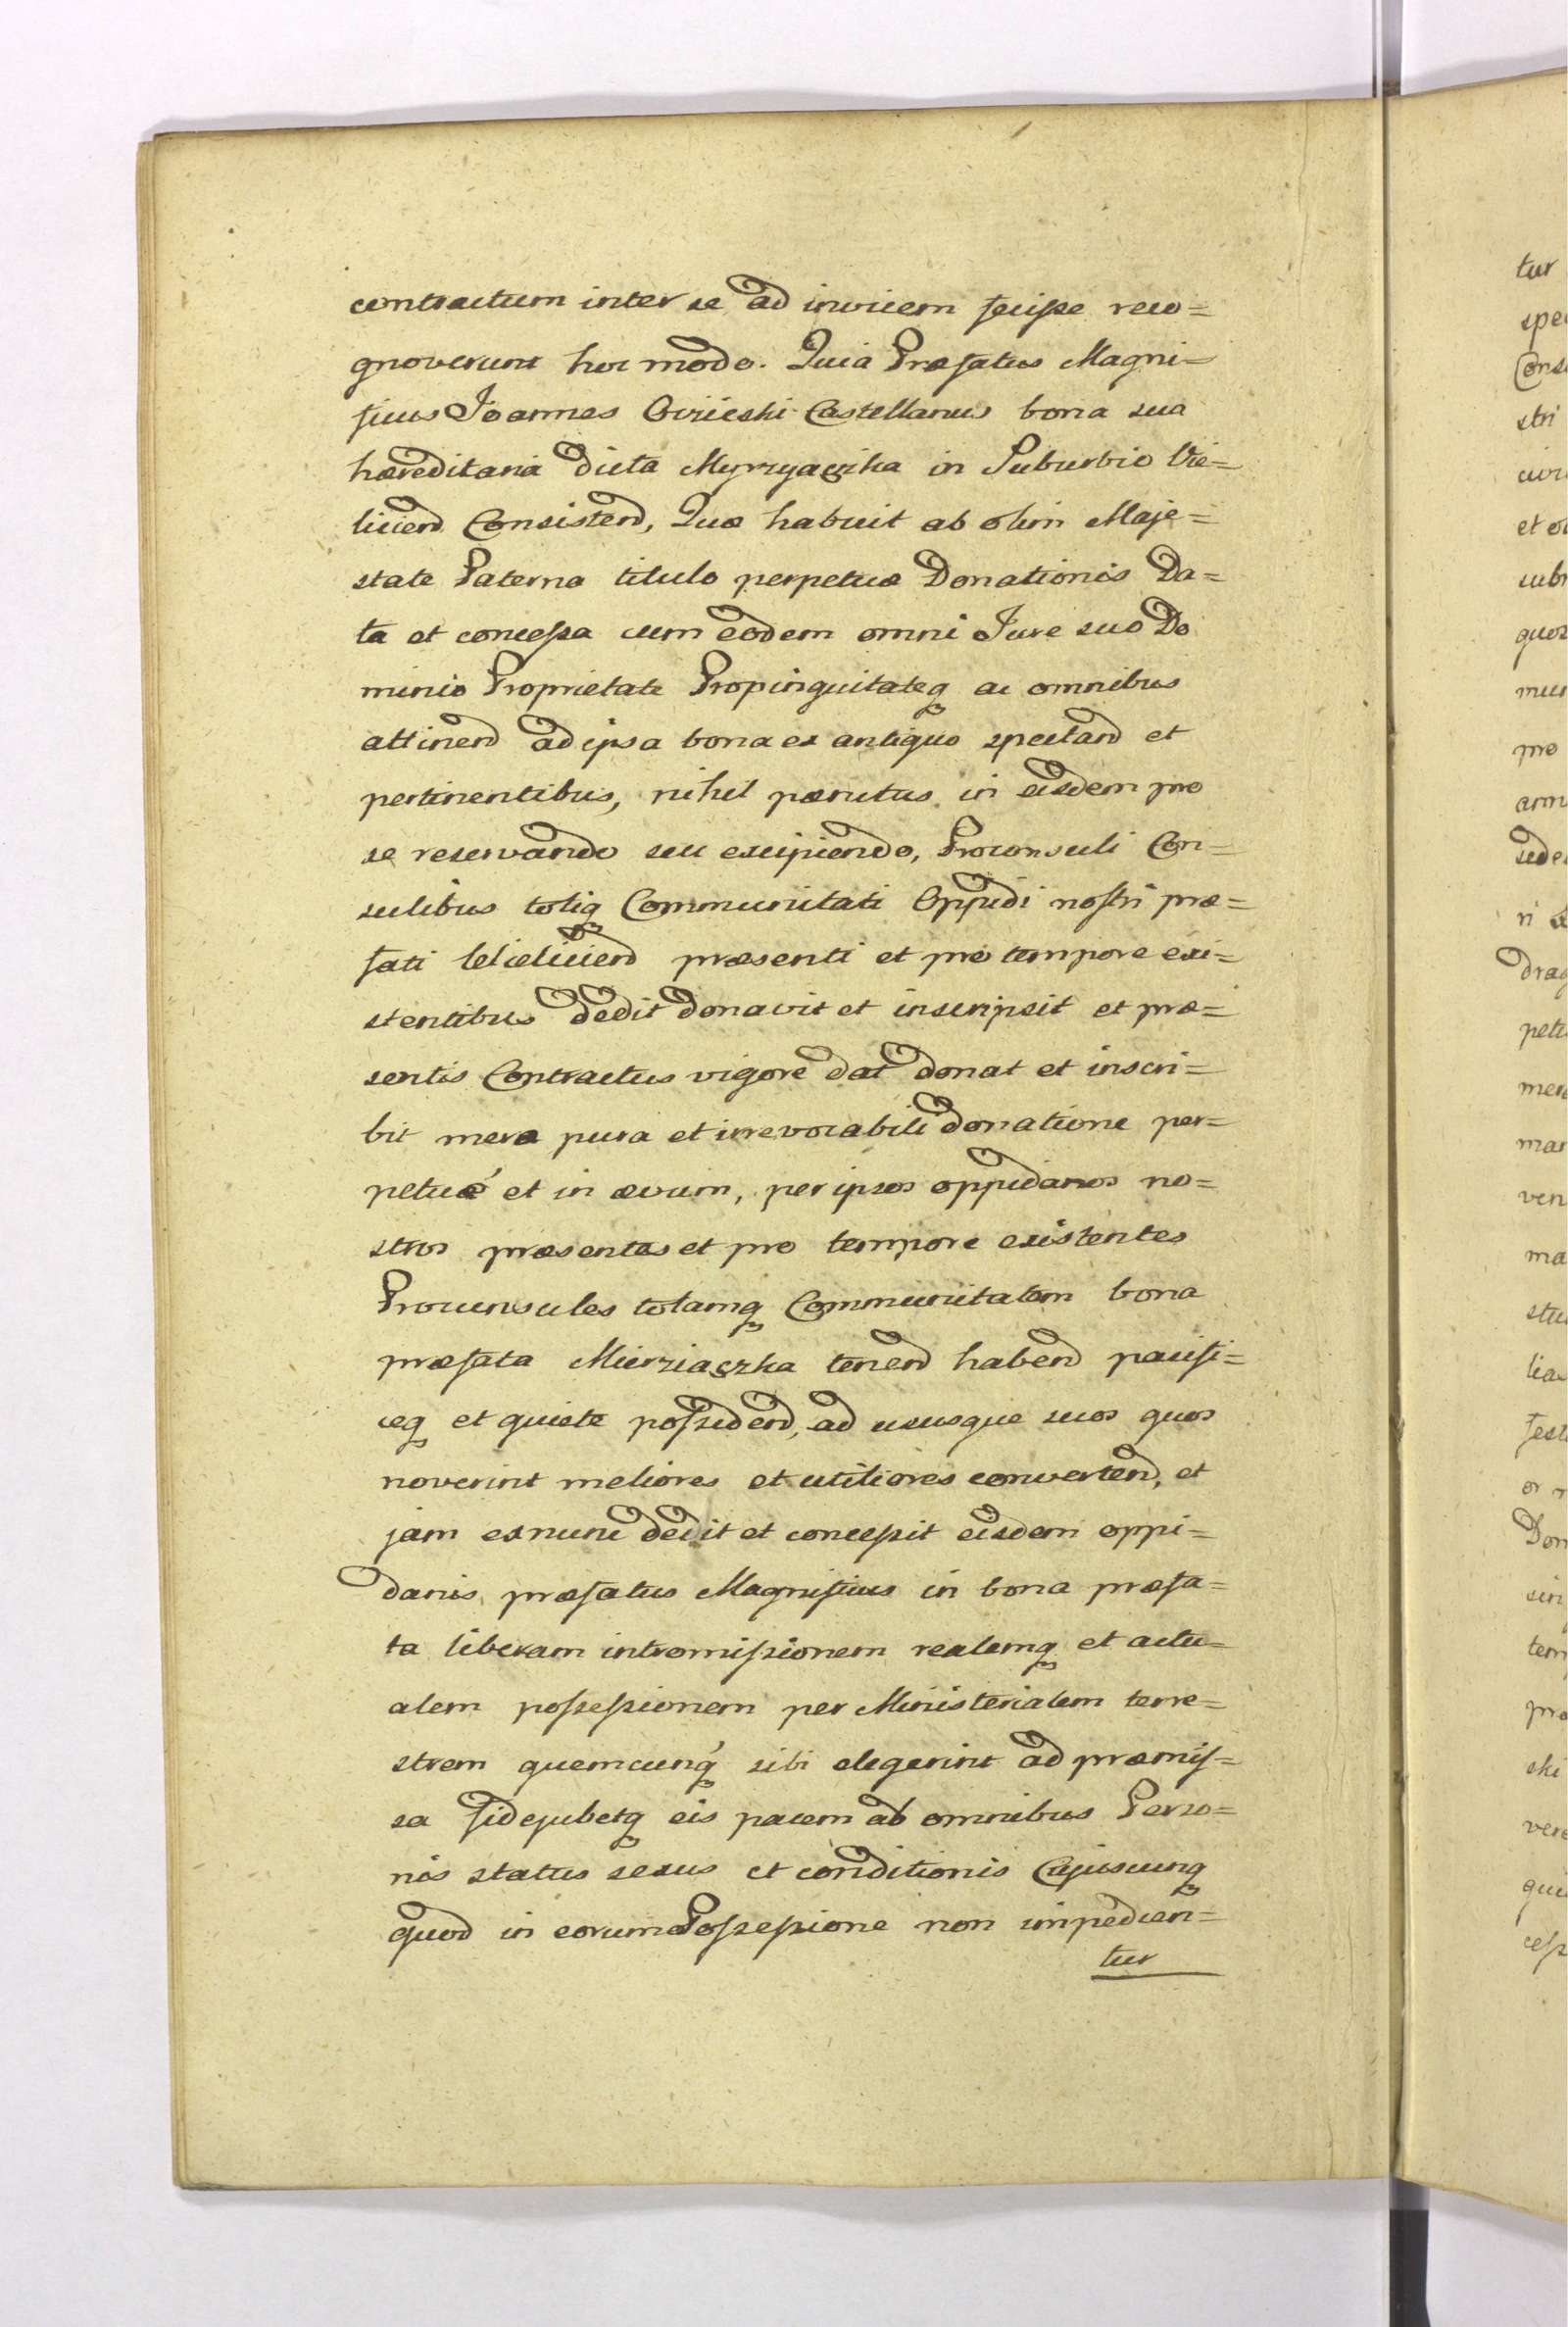 contractum inter se ad invicem fecisse reco=
gnoverunt hoc modo. Quia Præfatus Magni=
ficus Joannes Ovzieski Castellanus bona sua
hæreditaria dicta Myrzyaczka in Suburbio Vie=
licien Consisten, Quæ habuit ab olim Maje=
state Paterna titulo perpetuæ Donationis Da=
ta et concessa cum eodem omni Jure suo Do
minio Proprietate Propinquitateq ac omnibus
attinend ad ipsa bona ex antiquo spectand et
pertinentibus, nihil pænitus in eisdem pro
se reservando seu excipiendo, Proconsuli Con=
sulibus totiq Communitati Oppidi nostri præ=
fati Wieliciend præsenti et pro tempore exi=
stentibus dedit donavit et inscripsit et præ=
sentis Contractus vigore dat donat et inscri=
bit mera pura et irrevocabili donatione per=
petué et in ævum, per ipsos oppidanos no=
stros præsentes et pro tempore existentes
Proconsules totamq Communitatem bona
præfata Mierziączka tenend habend pacifi=
ceq et quiete possidend, ad ususque suos quos
noverint meliores et utiliores convertend, et
jam exnunc dedit et concessit eisdem oppi=
danis præfatus Magnificus in bona præfa=
ta liberam intromissionem realemq et actu=
alem possessionem per Ministerialem terre=
strem quemcunq sibi elegerint ad præmis=
sa fidejubetq eis pacem ab omnibus Perso=
nis status sexus et conditionis Cujuscunq
quod in eorum Possessione non impedien=
tur